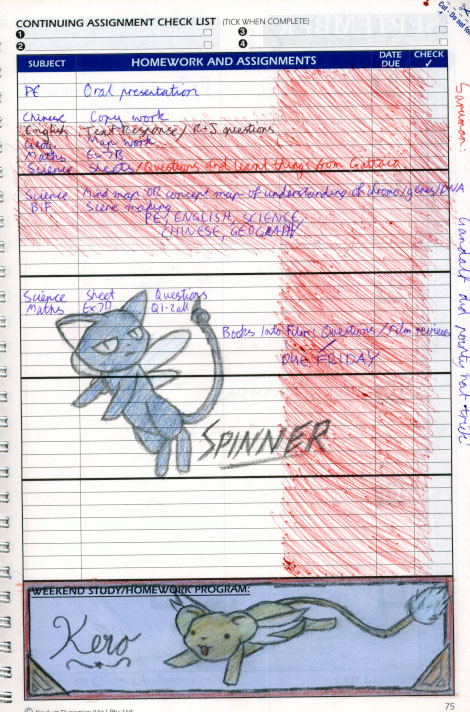 CONTINUING ASSIGNMENT CHECK LIST (TICK WHEN COMPLETE)
1 3
2 4
SUBJECT HOMEWORK AND ASSIGNMENTS DATE DUE CHECK ✓
PE Oral presentation
Chinese Copy work
English Text Response / R+J questions
Geog. Map work
Maths Ex 7B
Science Sheets/Questions and learnt things from Gattaca
Science Mind map OR concept map of understanding of chromo/genes/DNA
BIF Scene making
PE, ENGLISH, SCIENCE,
CHINESE, GEOGRAPHY
Science Sheet Questions
Maths Ex 7D Q1-
Books Into Film: Questions / Film reviews
DUE FRIDAY
SPINNER
WEEKEND STUDY/HOMEWORK PROGRAM:
Kero
75
Saruman:
Gandalf
hat